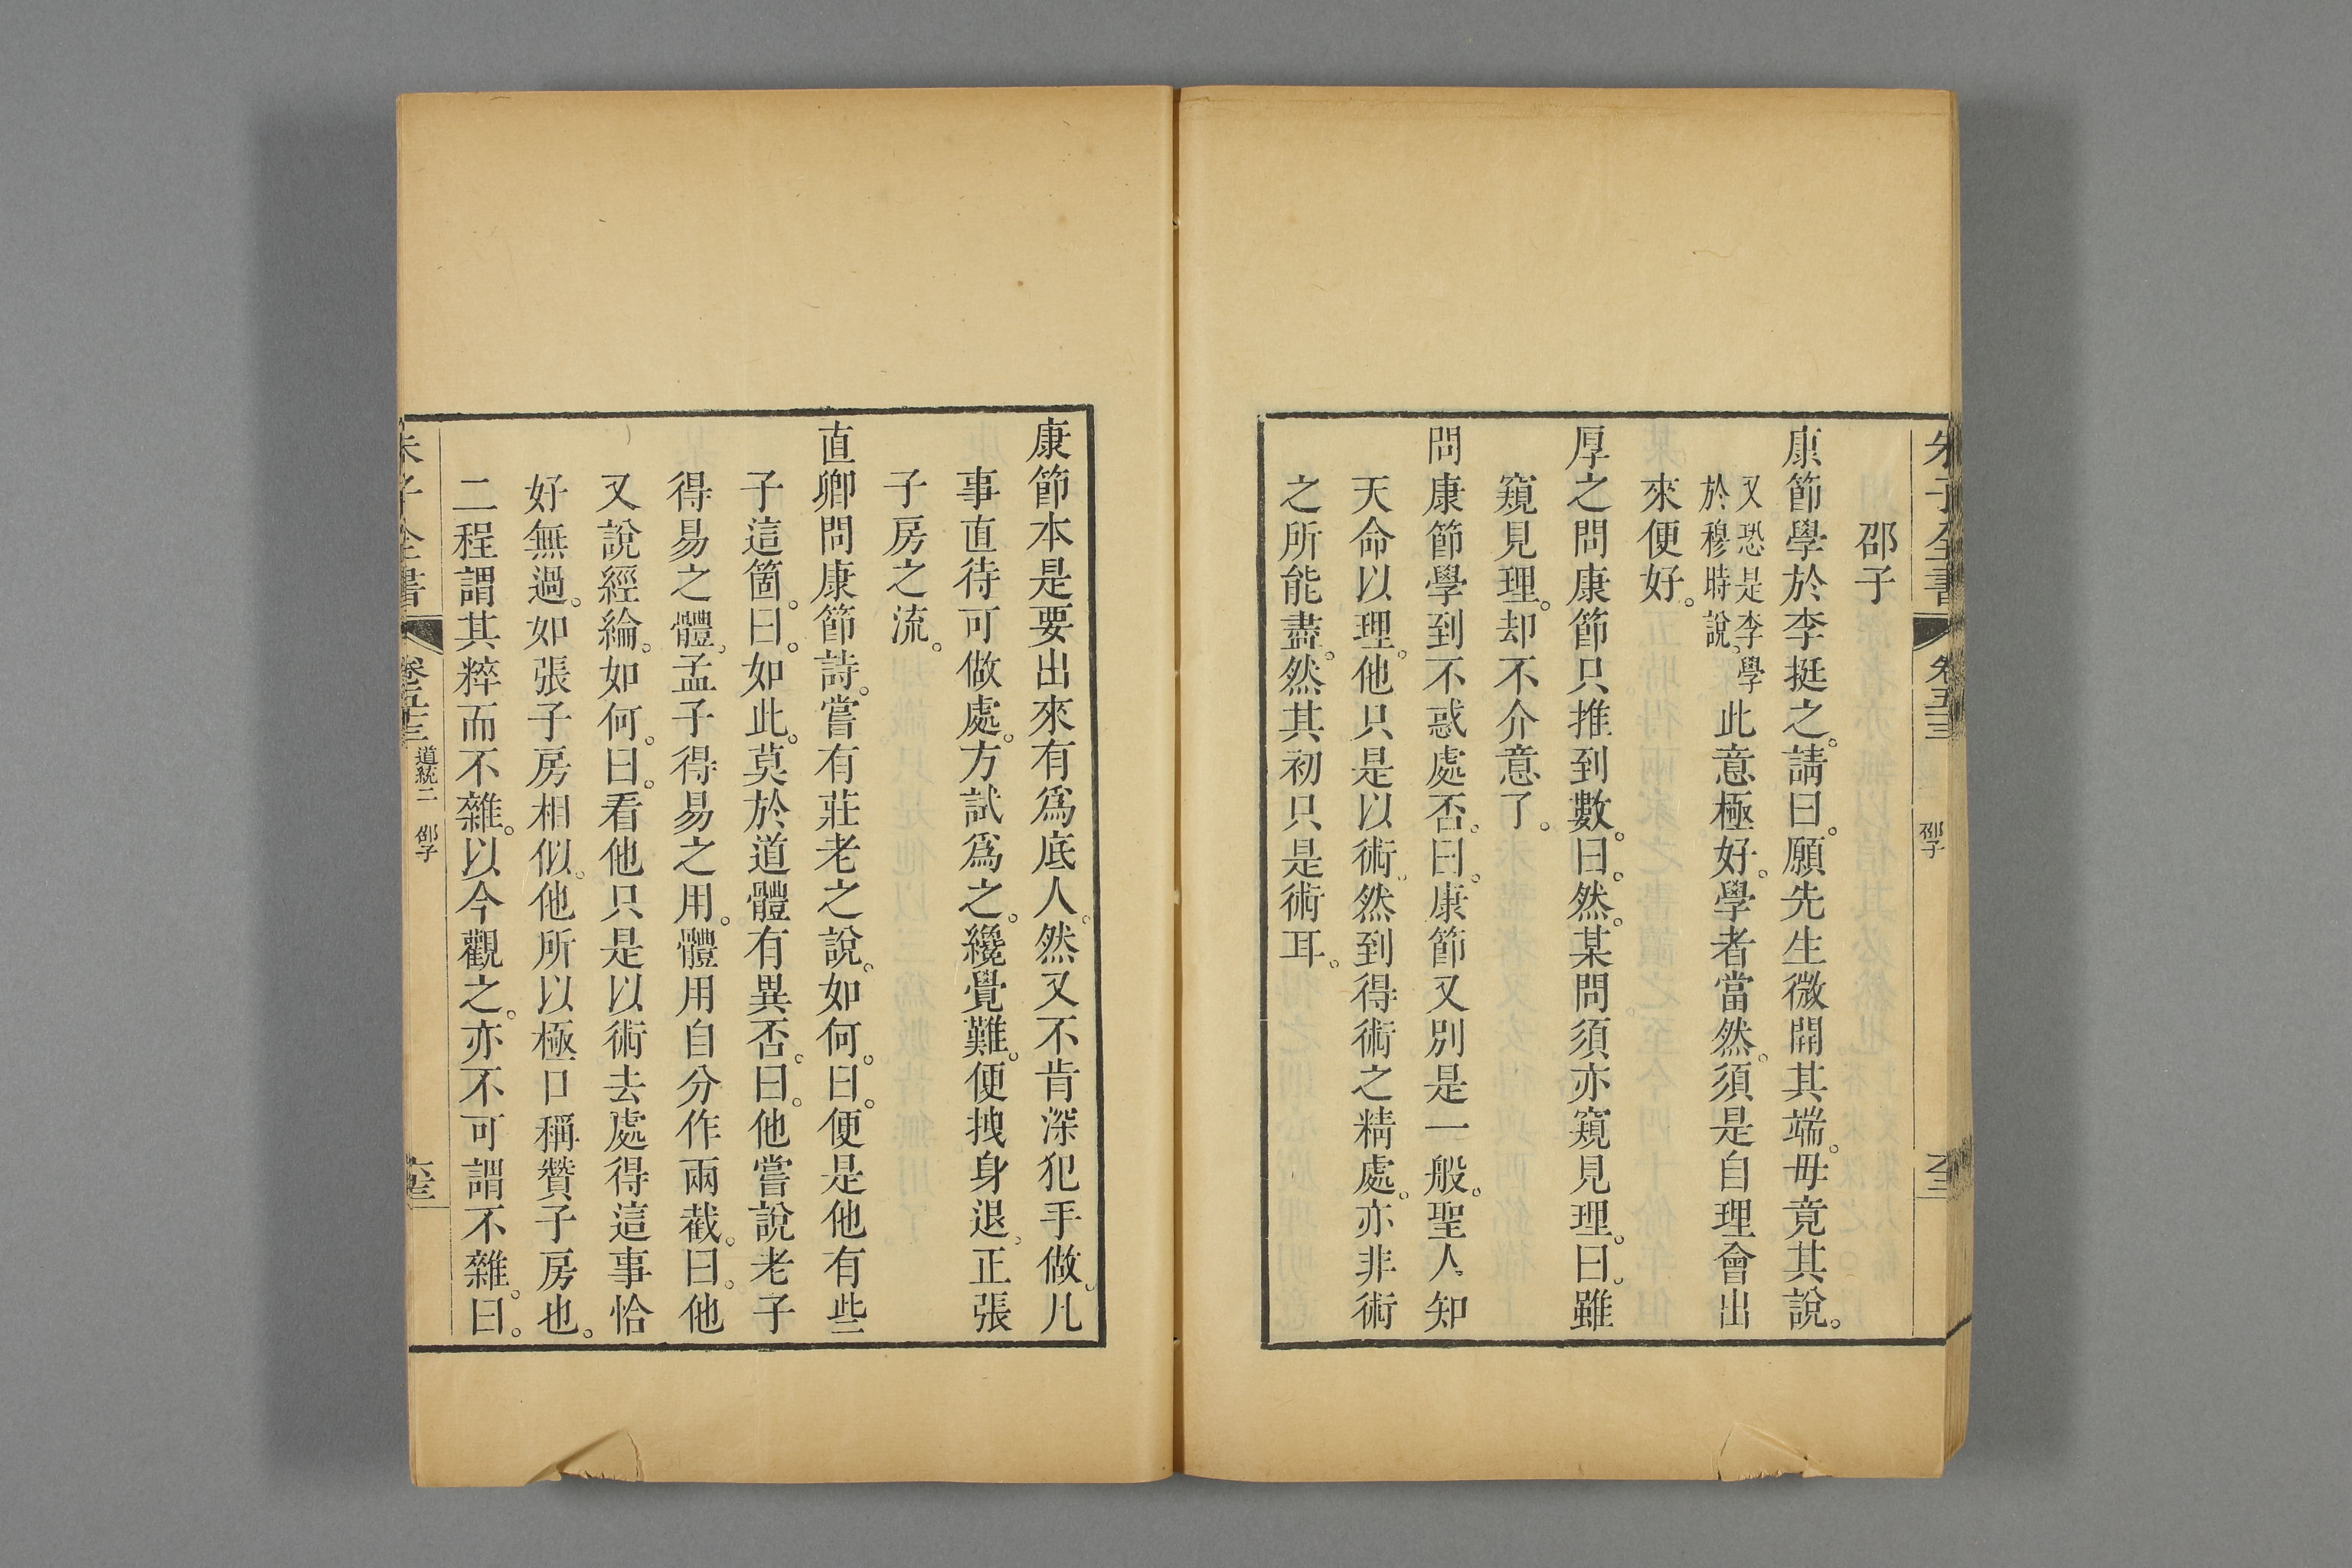 朱子全書 卷五十三 邵子 六十三
邵子
康節學於李挺之。請曰。願先生微開其端。毋竟其說。
又恐是李學
於穆時說。
此意極好。學者當然。須是自理會出
來便好。
厚之問康節只推到數。曰。然。某問須亦窺見理。曰。雖
窺見理。却不介意了。
問康節學到不惑處否。曰。康節又別是一般。聖人知
天命以理。他只是以術。然到得術之精處。亦非術
之所能盡。然其初只是術耳。
康節本是要出來有爲底人。然又不肯深犯手做。凡
事直待可做處。方試爲之。纔覺難。便拽身退。正張
子房之流。
直卿問康節詩。嘗有莊老之說。如何。曰。便是他有些
子這箇。曰。如此。莫於道體有異否。曰。他嘗說老子
得易之體。孟子得易之用。體用自分作兩截。曰。他
又說經綸。如何。曰。看他只是以術去處得這事恰
好無過。如張子房相似。他所以極口稱贊子房也。
二程謂其粹而不雜。以今觀之。亦不可謂不雜。曰。
朱子全書 卷五十三 道統二 邵子 六十三